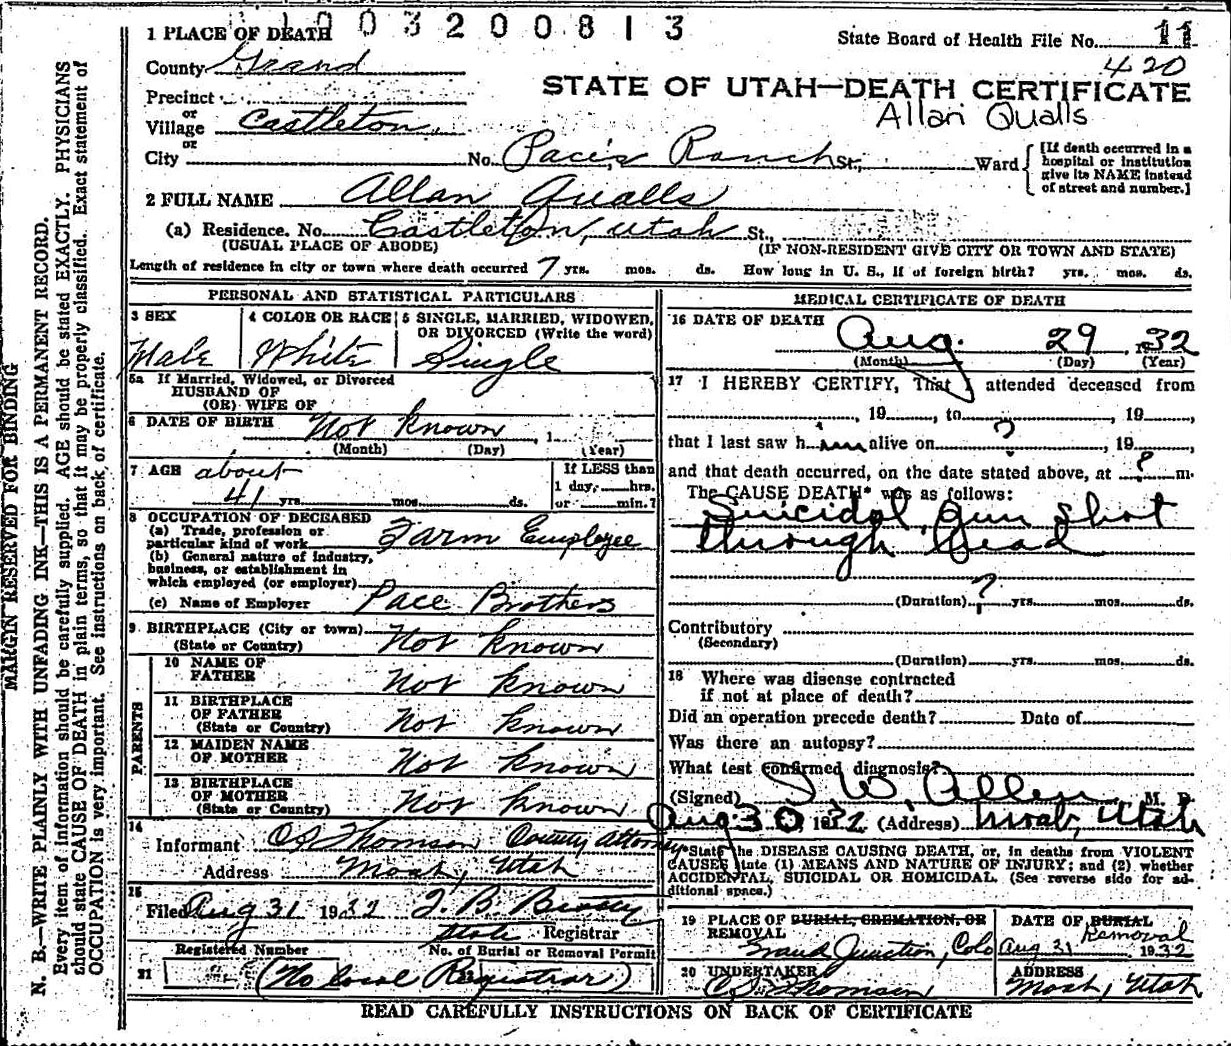 1003200813
1 PLACE OF DEATH
State Board of Health File No. 11
420
County Grand
STATE OF UTAH—DEATH CERTIFICATE
Allan Qualls
Precinct
or
Village Castleton,
or
City No. Paces Ranch St., Ward
[If death occurred in a
hospital or institution
give its NAME instead
of street and number.]
2 FULL NAME Allan Qualls
(a) Residence. No. Castleton, Utah St.,
(USUAL PLACE OF ABODE) (IF NON-RESIDENT GIVE CITY OR TOWN AND STATE)
Length of residence in city or town where death occurred 7 yrs. mos. ds. How long in U. S., if of foreign birth? yrs. mos. ds.
PERSONAL AND STATISTICAL PARTICULARS
3 SEX
Male
4 COLOR OR RACE
White
5 SINGLE, MARRIED, WIDOWED,
OR DIVORCED (Write the word)
Single
5a If Married, Widowed, or Divorced
HUSBAND OF
(OR) WIFE OF
6 DATE OF BIRTH Not known, 1
(Month) (Day) (Year)
7 AGE about
41 yrs. mos. ds.
If LESS than
1 day, hrs.
or min.?
8 OCCUPATION OF DECEASED
(a) Trade, profession or
particular kind of work Farm Employee
(b) General nature of industry,
business, or establishment in
which employed (or employer)
(c) Name of Employer Pace Brothers
9 BIRTHPLACE (City or town)
(State or Country) Not known
PARENTS
10 NAME OF
FATHER Not known
11 BIRTHPLACE
OF FATHER
(State or Country) Not known
12 MAIDEN NAME
OF MOTHER Not known
13 BIRTHPLACE
OF MOTHER
(State or Country) Not known
14
Informant Thomson County Attorney
Address Moab, Utah
15
Filed Aug 31 1932
State Registrar
Registered Number No. of Burial or Removal Permit
21 22
(No local Registrar)
MEDICAL CERTIFICATE OF DEATH
16 DATE OF DEATH Aug. 29, 1932
(Month) (Day) (Year)
17 I HEREBY CERTIFY, That I attended deceased from
, 19, to, 19,
that I last saw him alive on ?, 19,
and that death occurred, on the date stated above, at ? m.
The CAUSE DEATH* was as follows:
Suicidal, Gun Shot
through Head
(Duration) ? yrs. mos. ds.
Contributory
(Secondary)
(Duration) yrs. mos. ds.
18 Where was disease contracted
if not at place of death?
Did an operation precede death? Date of
Was there an autopsy?
What test confirmed diagnosis?
(Signed) J. W. Allen, M. D.
Aug 30, 1932 (Address) Moab, Utah
*State the DISEASE CAUSING DEATH, or, in deaths from VIOLENT
CAUSES state (1) MEANS AND NATURE OF INJURY; and (2) whether
ACCIDENTAL, SUICIDAL OR HOMICIDAL. (See reverse side for ad-
ditional space.)
19 PLACE OF BURIAL, CREMATION, OR
REMOVAL
Grand Junction, Colo
DATE OF BURIAL
Removal
Aug 31 1932
20 UNDERTAKER
Thomson
ADDRESS
Moab, Utah
READ CAREFULLY INSTRUCTIONS ON BACK OF CERTIFICATE
MARGIN RESERVED FOR BINDING
N. B.—WRITE PLAINLY WITH UNFADING INK—THIS IS A PERMANENT RECORD.
Every item of information should be carefully supplied. AGE should be stated EXACTLY. PHYSICIANS
should state CAUSE OF DEATH in plain terms, so that it may be properly classified. Exact statement of
OCCUPATION is very important. See instructions on back of certificate.